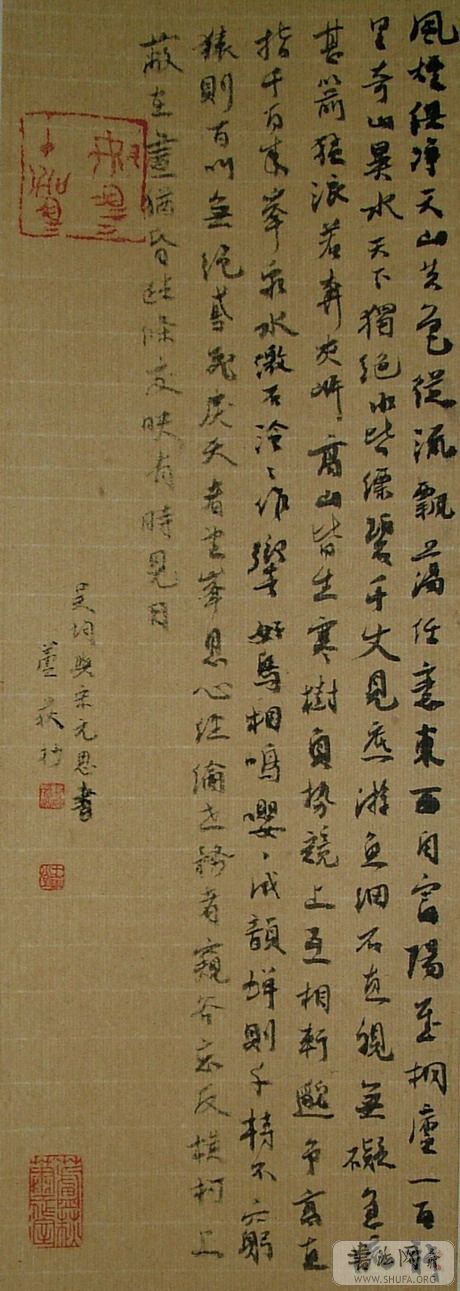 風煙俱淨天山共色從流飄蕩任意東西自富陽至桐廬一百
里奇山異水天下獨絕水皆縹碧千丈見底游魚細石直視無礙急
甚箭猛浪若奔夾岸高山皆生寒樹負勢競上互相軒邈爭高直
指千百成峯泉水激石泠〻作響好鳥相鳴嚶〻成韻蟬則千轉不窮
猿則百叫無絕鳶飛戾天者望峯息心經綸世務者窺谷忘反橫柯上
蔽在晝猶昏疏條交映有時見日
吳均與宋元思書
蘆荻抄
WWW.SHUFA.ORG